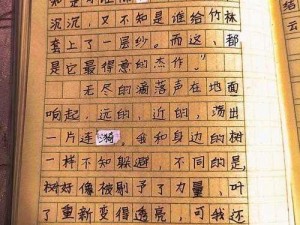 沉沉，又不知是谁给竹林
套上了一层纱。而这，都
是它最得意的杰作。
无尽的滴落声在地面
响起，远的，近的，荡出
一片连漪，我和身边的树
一样不知躲避，不同的是，
树好像被剔予了力量，叶
了重新变得透亮，可我还